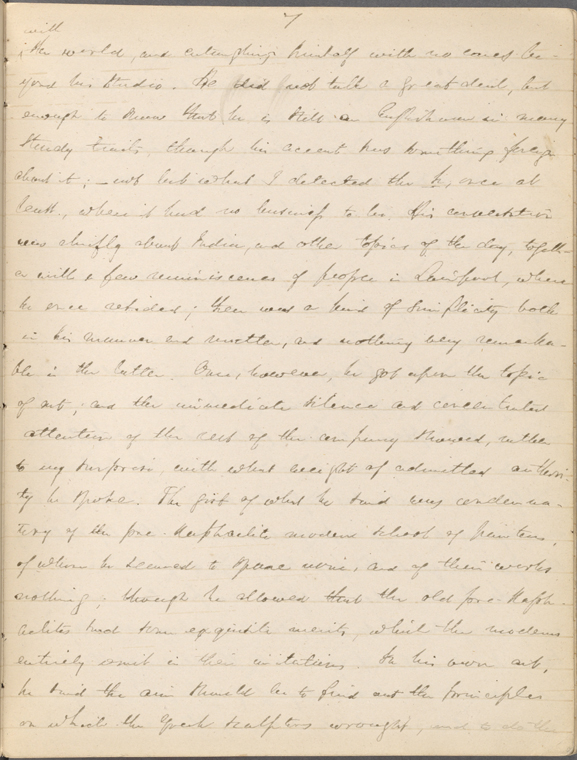 7
with
the world, and entangling himself with no cares be-
yond his studio. He did not talk a great deal, but
enough to show that he is still an Englishman in many
sturdy traits, though his accent has something foreign
about it; – not but what I detected the h, once at
least, when it had no business to be. His conversation
was chiefly about India, and other topics of the day, togeth-
er with a few reminiscences of people in Liverpool, where
he once resided; there was a kind of simplicity both
in his manner and matter, and nothing very remarka-
ble in the latter. Once, however, he got upon the topic
of art, and the immediate silence and concentrated
attention of the rest of the company showed, rather
to my surprise, with what weight of admitted authori-
ty he spoke. The gist of what he said was condemna-
tory of the pre-Raphaelite modern school of painters,
of whom he seemed to spare none, and of their works
nothing; though he allowed that the old pre-Raph-
aelites had some exquisite merits, which the moderns
entirely omit in their imitations. In his own art,
he said the aim should be to find out the principles
on which the Greek sculptors wrought, and to do the